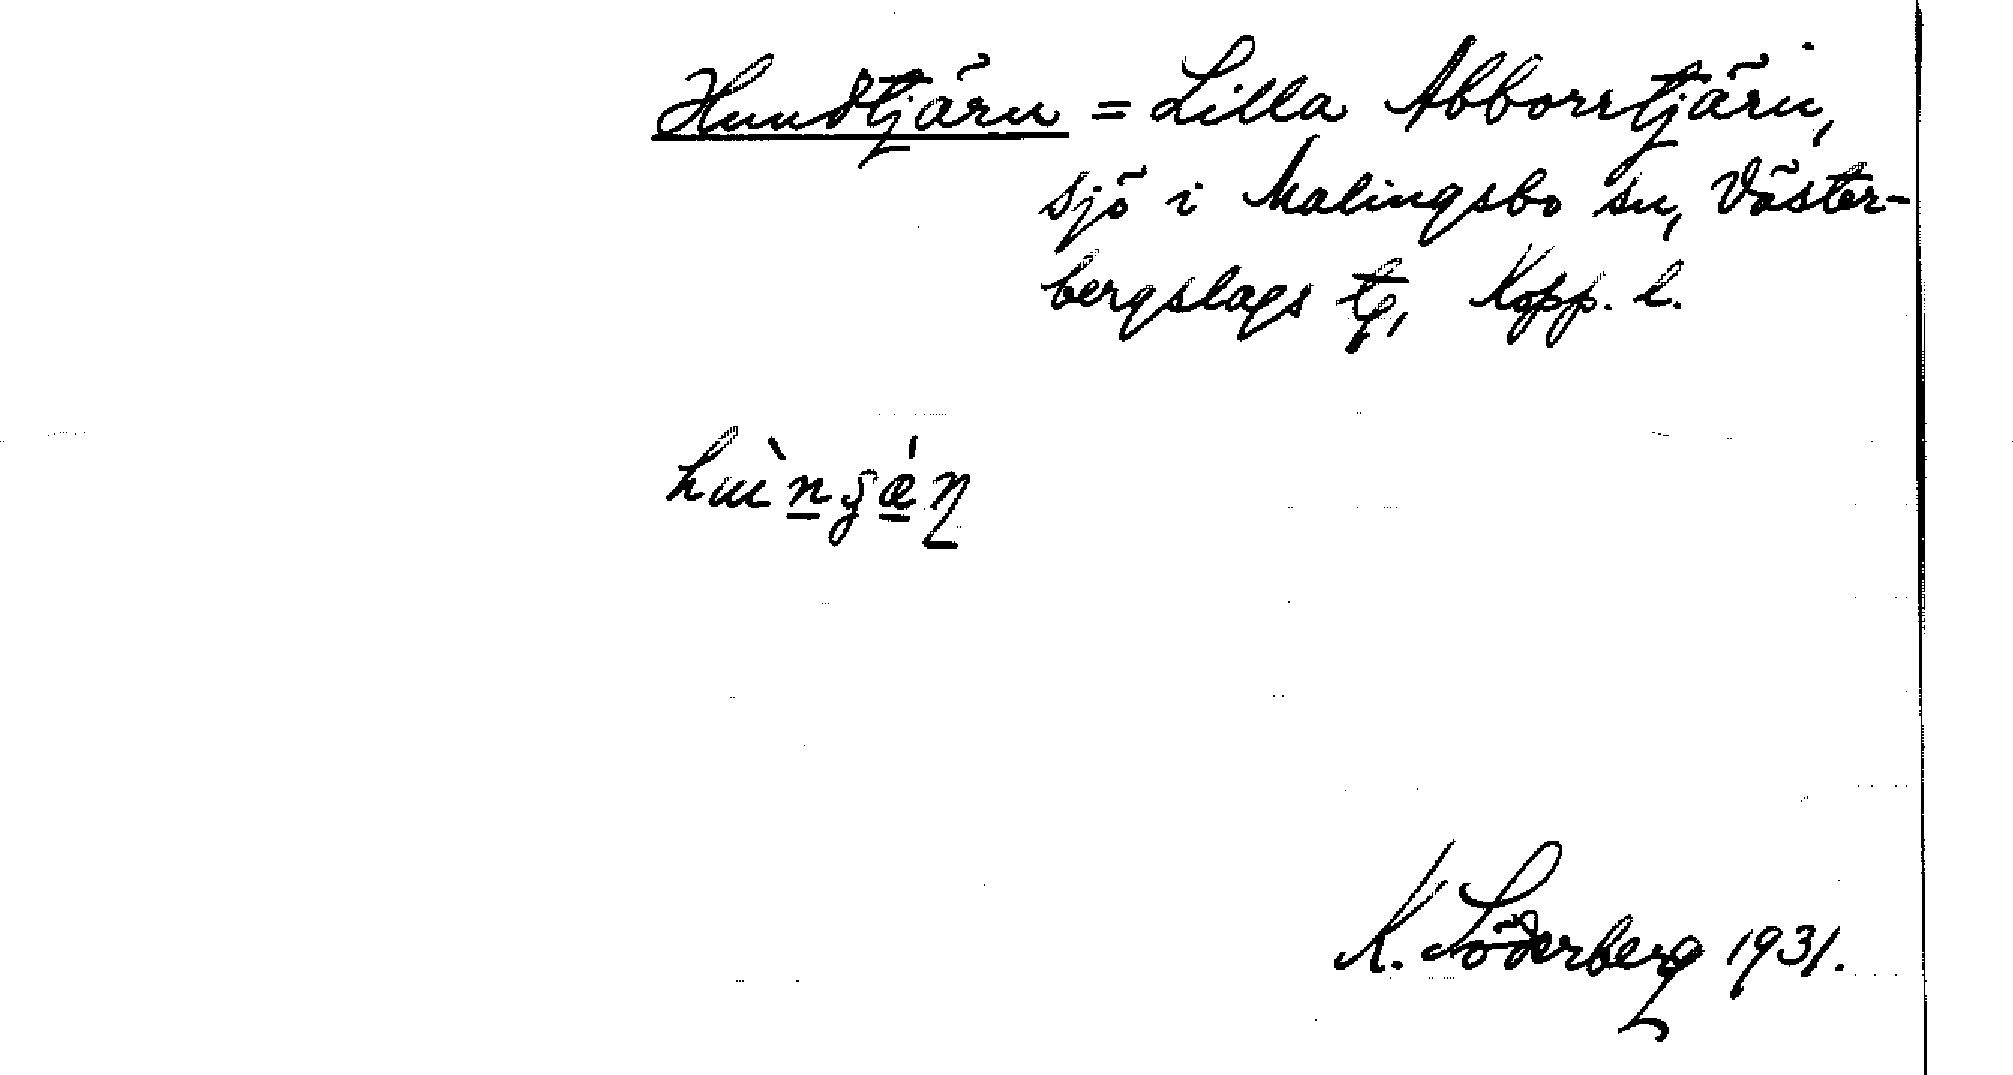 Hundtjärn = Lilla Abborrtjärn,
sjö i Malingsbo sn, Väster-
bergslags tg, Kopp. l.
K. Söderberg 1931.